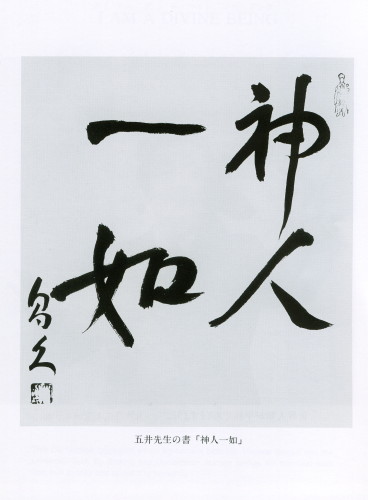 神人
一如
昌久
五井先生の書「神人一如」